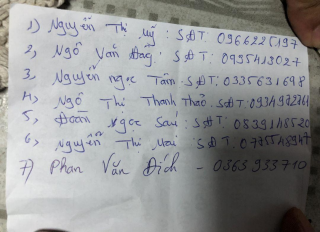 1) Nguyễn Thị Mỹ : SĐT: 0966225197
2, Ngô Văn SĐT: 0995413027
3, Nguyễn Ngọc Tân. SĐT: 0335631698
4, Ngô Thị Thanh Thảo. SĐT:
5, Đoàn Ngọc Sáu: SĐT: 0839148520
6, Nguyễn Thị SĐT:
7) Phan Văn Đích - 0365933710